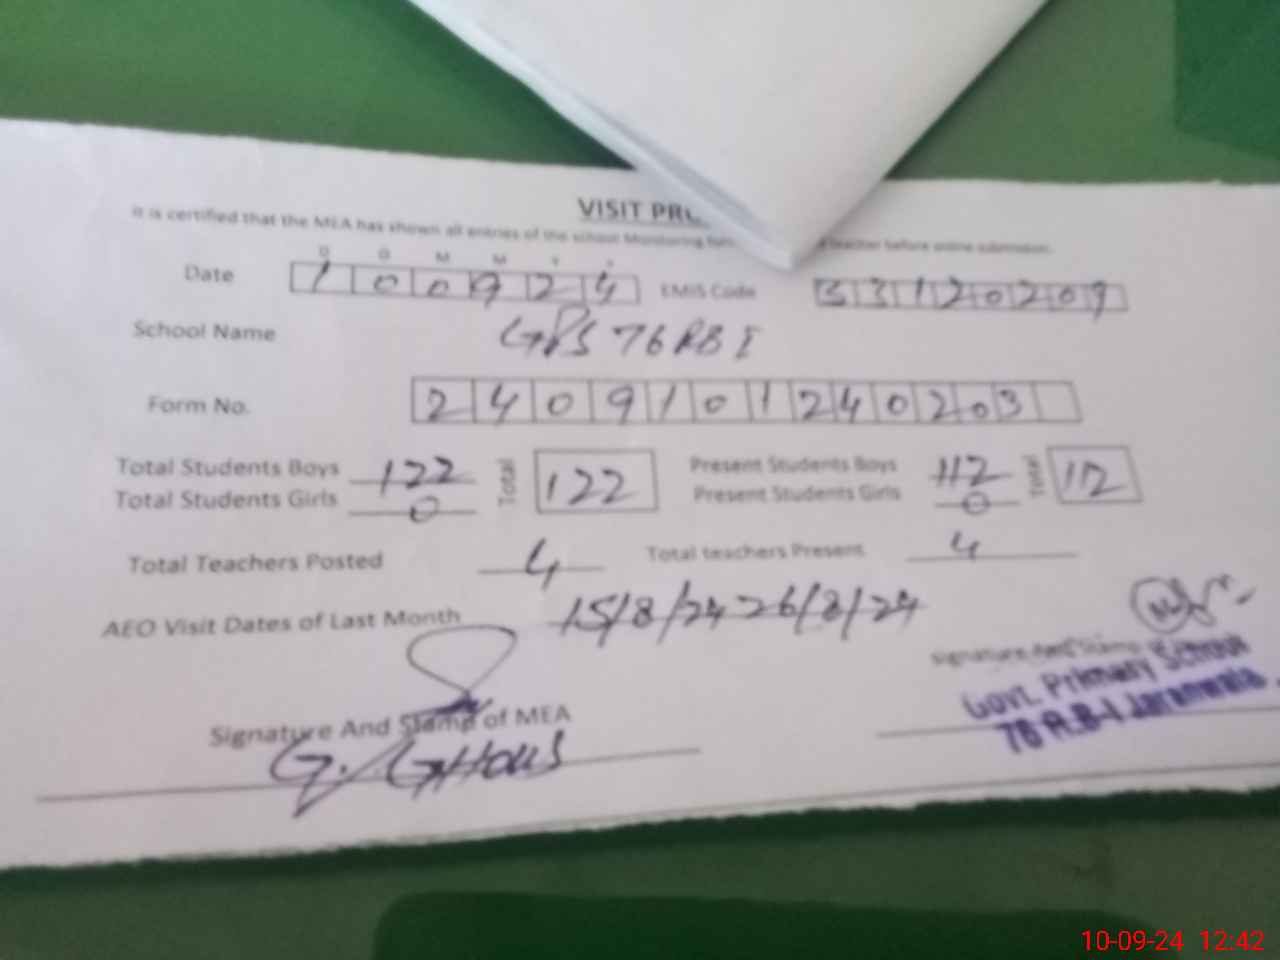 VISIT
It is certified that the MEA has shown all entries of the school Monitoring teacher before online submission.
D D M M Y Y
Date 1 0 0 9 2 4 EMIS Code 3 3 1 2 0 2 0 9
School Name GPS 76 RB I
Form No. 2 4 0 9 1 0 1 2 4 0 2 0 3
Total Students Boys 122 Total 122 Present Students Boys 112 Total 112
Total Students Girls 0 Present Students Girls 0
Total Teachers Posted 4 Total teachers Present 4
AEO Visit Dates of Last Month 15/8/24 26/8/24
Signature And Stamp
Govt. Primary School
76 R.B-I Jaranwala
Signature And Stamp of MEA
G. GHOUS
10-09-24 12:42